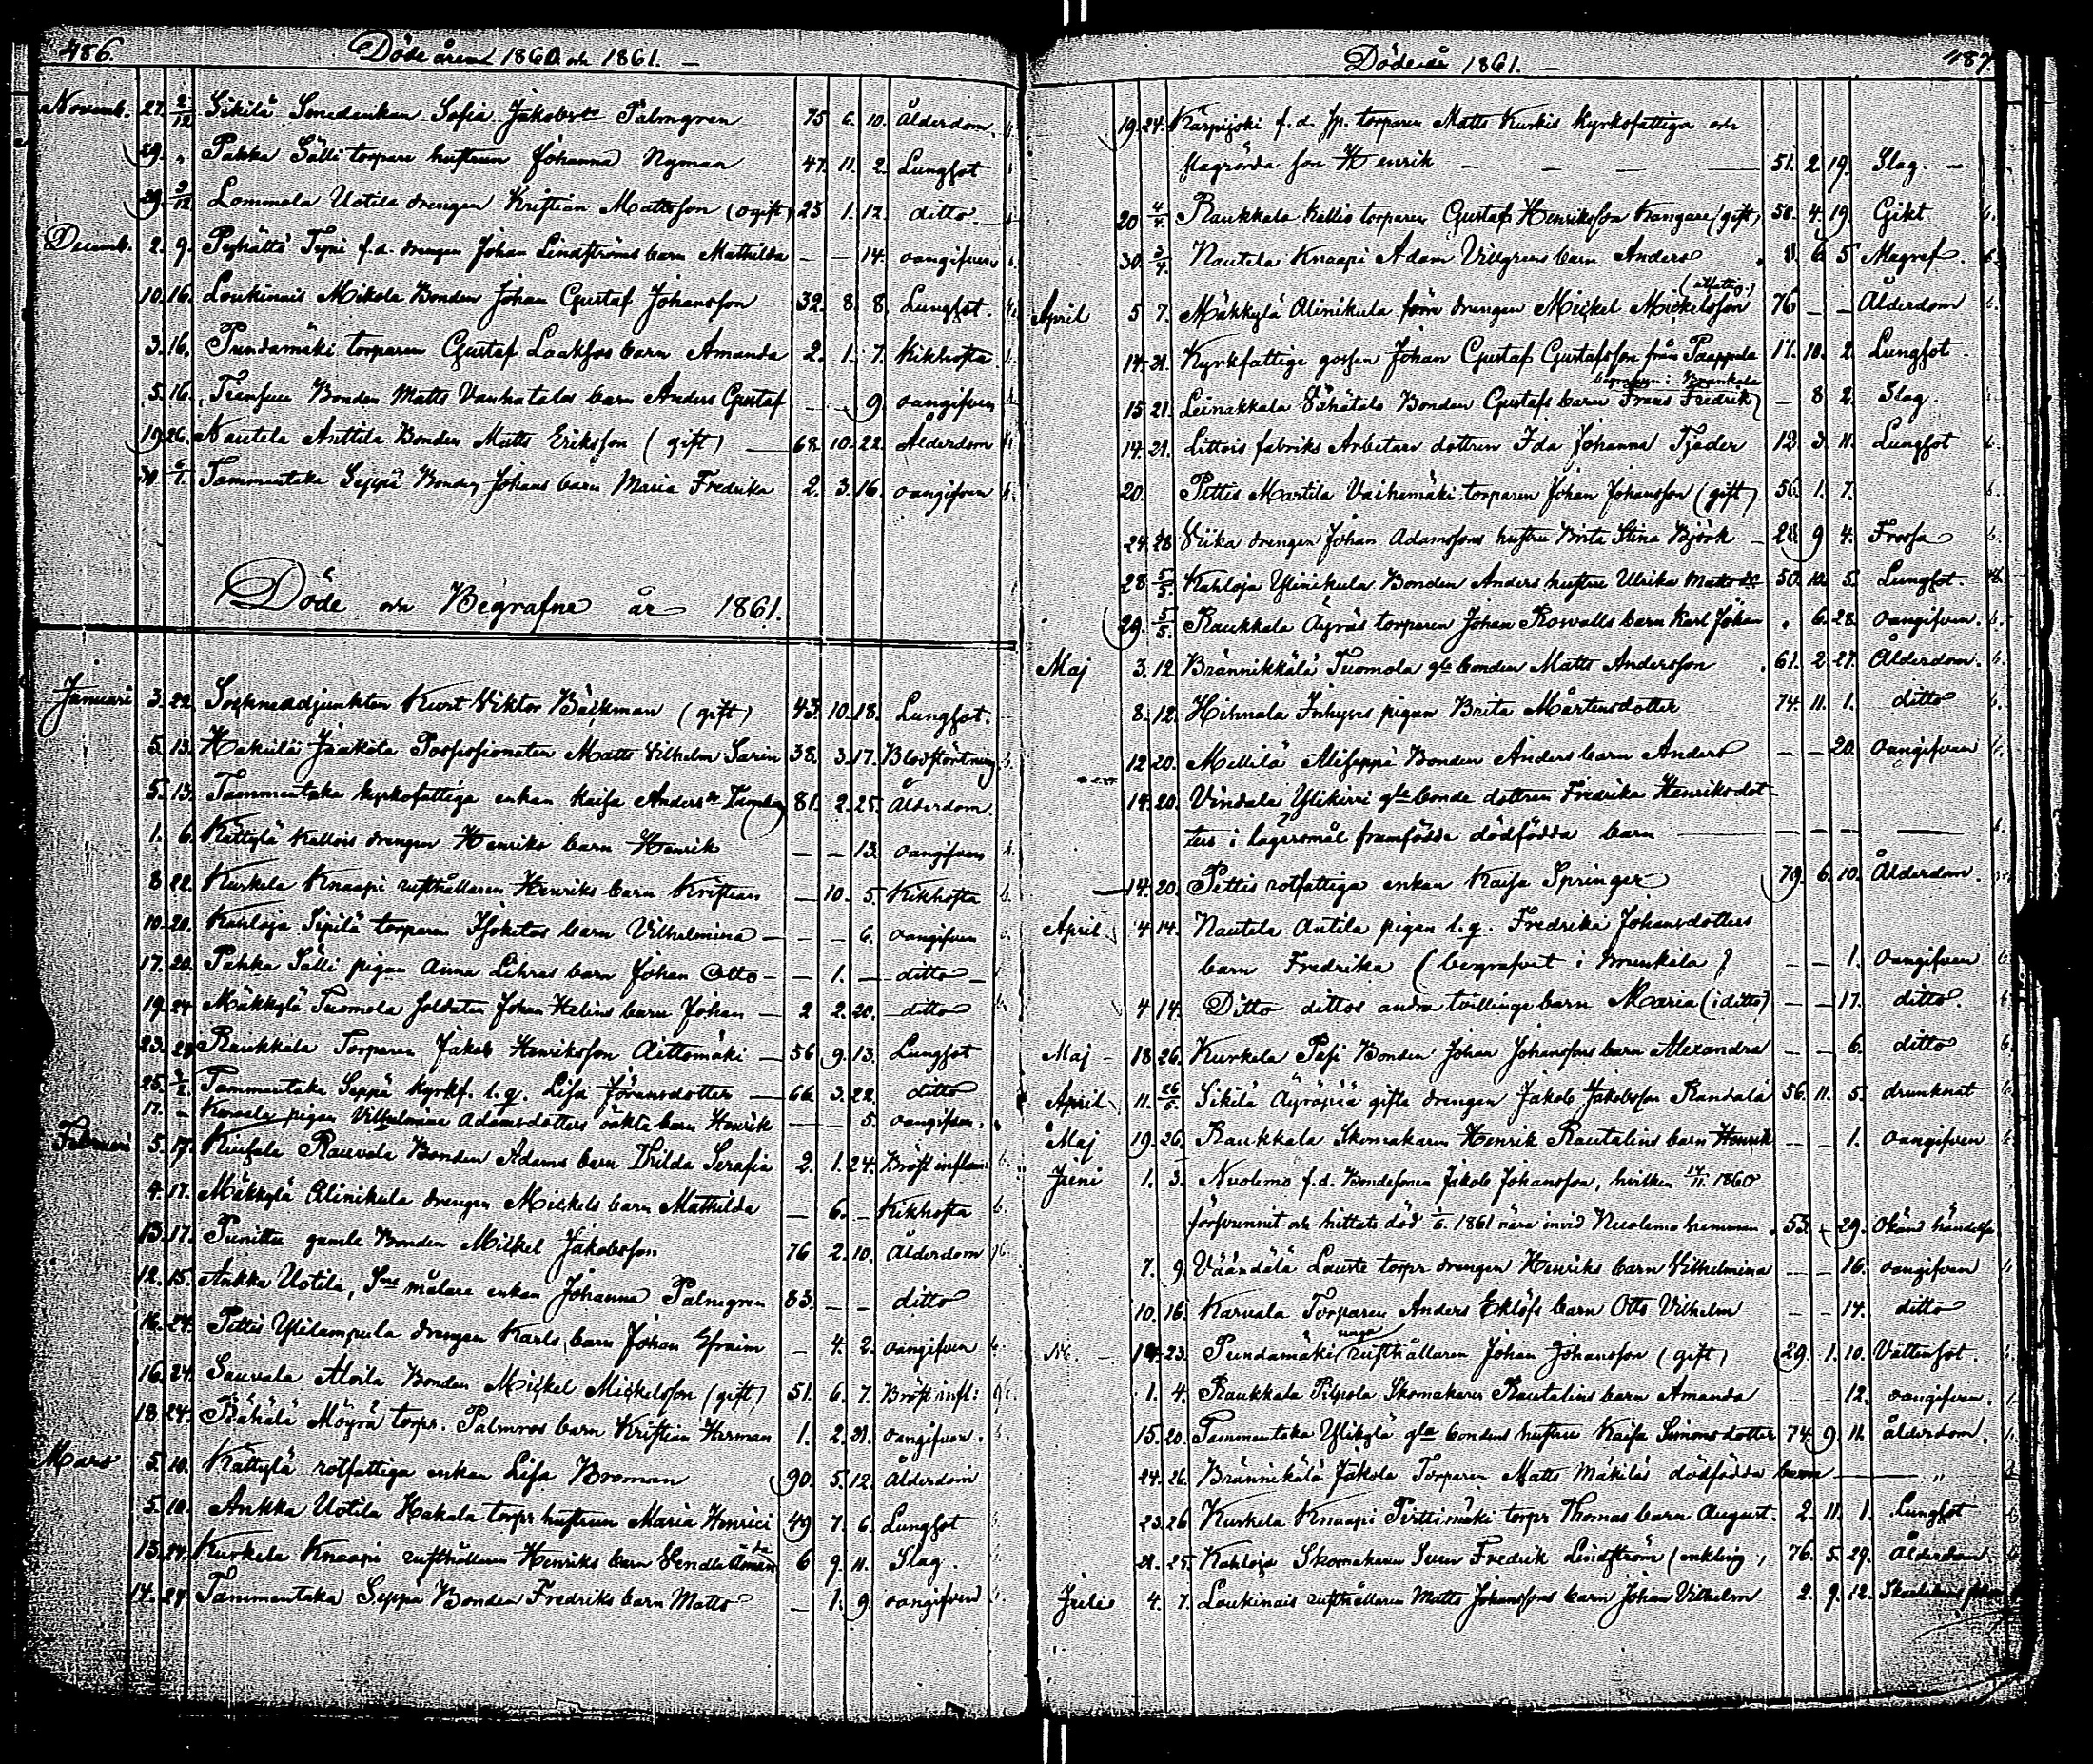 486.
Döde åren 1860 och 1861. —
Novemb. 27. 2/12 Sikilä Smedenkan Sofia Jakobsdr Palmgren 75 6. 10. Ålderdom.
29. " Pahka Sälli torpare hustrun Johanna Nyman 47. 11. 2. Lungsot
29. 9/12 Lommola Uotila drengen Kristian Mattsson (ogift) 25 1. 12. ditto.
Decemb. 2. 9. Pyhältö Tyni f.d. drengen Johan Lindströms barn Mathilda — — 14. oangifven
10. 16. Loukinais Mikola Bonden Johan Gustaf Johansson 32. 8. 8. Lungsot.
3. 16. Pundamäki torparen Gustaf Laaksos barn Amanda 2. 1. 7. Kikhosta
5. 16. Bonden Matts Vanhatalos barn Anders Gustaf — — 9. oangifven
19. 26. Nautela Anttila Bonden Matts Eriksson (gift) — 68. 10. 22. Ålderdom
30 6/1. Tammentaka Seppä Bonden Johans barn Maria Fredrika 2. 3. 16. oangifven
Döde och Begrafne år 1861.
Januari 3. 22. Sockneadjunkten Kurt Viktor Bäckman (gift) 43. 10. 18. Lungsot.
5. 13. Hakula Jaakola Possessionaten Matts Vilhelm Sarin 38. 3. 17. Blodstörtning
5. 13. Tammentaka kyrkofattiga enkan Kaisa Andersdr 81. 2. 25. Ålderdom.
1. 6. Kättylä Kallois drengen Henriks barn Henrik — — 13. oangifven
8 22. Kurkela Knaapi rusthållaren Henriks barn Kristian — 10. 5. Kikhosta
10. 20. Kahloja Sipilä torparen Isotalos barn Vilhelmina — — — 6. oangifven
17. 20. Pahka Sälli pigan Anna Lihras barn Johan Otto — — 1. — ditto —
19. 24 Mäkkylä Tuomola soldaten Johan Helins barn Johan — 2 2. 20. ditto
23. 28 Raukkala Torparen Jakob Henriksson Aittomäki — 56 9. 13. Lungsot
25. 3/2. Tammentaka Seppä kyrkf. l. q. Lisa Jöransdotter — 66 3. 22. ditto
17. — pigan Vilhelmina Adamsdotters oäkta barn Henrik — — 5. oangifven.
Februari 5. 17. Rauvola Bonden Adams barn Hilda Serafia 2. 1. 24. Bröst inflam:
4. 17. Mäkkylä Alinikula drengen Mickels barn Mathilda — 6. — Kikhosta
13. 17. Punittu gamle Bonden Mickel Jakobsson 76 2. 10. Ålderdom
12. 15. Ankka Uotila, målare enkan Johanna Palmgren 83. — — ditto
16. 24. Pettis Ylilampula drengen Karls barn Johan Efraim — 4. 2. oangifven
16. 24. Sauvala Alvila Bonden Mickel Mickelsson (gift) 51. 6. 7. Bröst infl:
18. 24. Rähälä Möyrä torpr. Palmroos barn Kristian Herman 1. 2. 21. oangifven.
Mars 5. 10. Kättylä rotfattiga enkan Lisa Broman 90. 5. 12. Ålderdom
5. 10. Ankka Uotila Hakala torpr hustrun Maria Henrici 49 7. 6. Lungsot
13. 24. Kurkela Knaapi rusthållaren Henriks barn Vendla Amanda 6 9. 11. Slag.
14. 24 Tammentaka Seppä Bonden Fredriks barn Matts — 1. 9. oangifven
487.
Döde år 1861. —
19. 24. Karpijoki f.d. torparen Matts Kurkis kyrkofattiga och
son Henrik — — — 51. 2. 19. Slag. —
20 4/4. Raukkala Kallis torparen Gustaf Henriksson Kangare (gift) 50. 4. 19. Gikt
30. 3/4. Nautela Knaapi Adam Villgrens barn Anders 8. 6. 5 Magref.
April 5 7. Mäkkylä Alinikula förre drengen Mickel Mickelsson 76 — — Ålderdom
14. 21. Kyrkfattige gossen Johan Gustaf Gustafsson från Paappala 17. 10. 2. Lungsot.
begrafven i Brunkala
15 21. Leinakkala Vähätalo Bonden Gustafs barn Frans Fredrik — 8 2. Slag.
14. 21. Littois fabriks Arbetare dottren Ida Johanna Tjader 12. 3. 11. Lungsot
20. Pettis Martila Vaihemäki torparen Johan Johansson (gift) 56. 1. 7.
24. 28 Viika drengen Johan Adamssons hustru Brita Stina Björk — 28. 9 4. Frossa
28 5/5. Kahloja Ylinikula Bonden Anders hustru Ulrika Mattsdr 50. 10. 5. Lungsot.
29. 5/5. Raukkala Äyräs torparen Johan Rosvalls barn Karl Johan " 6. 28 oangifven.
Maj 3. 12 Brännikkälä Tuomola gle bonden Matts Andersson 61. 2. 27. Ålderdom.
8. 12. Hihnala pigan Brita Mårtensdotter 74. 11. 1. ditto
12 20. Millilä Aliseppä Bonden Anders barn Anders — — 20. oangifven
14. 20. Vindala Ylikirri gle bonde dottren Fredrika Henriksdot-
ters i lägersmål framfödde dödfödda barn — — — —
14. 20. Pettis rotfattiga enkan Kaisa Springer 79. 6. 10. Ålderdom.
April 4 14. Nautela Antila pigan l. q. Fredrika Johansdotters
barn Fredrika (begrafvet i Brunkala) — — 1. oangifven
4 14. Ditto dittos andra tvillinge barn Maria (i ditto) — — 17. ditto.
Maj — 18 26. Kurkela Pasi Bonden Johan Johanssons barn Alexandra — — 6. ditto
April 11. 26/5. Sikilä Äyräpää gifte drengen Jakob Jakobsson Randala 56. 11. 5. drunknat
Maj 19. 26. Raukkala Skomakaren Henrik Rautalins barn Henrik — — 1. oangifven
Juni 1. 3. Nuolemo f.d. Bondesonen Jakob Johansson, hvilken 14/11. 1860
försvunnit och hittats död 1/6. 1861 nära invid Nuolemo hemman. 53. — 29. Okänd händelse
7. 9 Väändälä Lauste torpr drengen Henriks barn Vilhelmina — — 16. oangifven
10. 16. Karvala Torparen Anders Eklöfs barn Otto Vilhelm — — 14. ditto
14. 23. Pundamäki unga rusthållaren Johan Johansson (gift) 29. 1. 10. Vattensot.
1. 4. Raukkala Pilpola Skomakaren Rautalins barn Amanda — — 12. oangifven.
15. 20. Tammentaka Ylikylä gla bondens hustru Kaisa Simonsdotter 74. 9. 11. ålderdom.
24. 26. Brännikälä Jakola Torparen Matts Mäkiläs dödfödda barn — "
23. 26 Kurkela Knaapi Pirttimäki torpr Thomas barn August. 2. 11. 1. Lungsot
21. 25. Kahloja Skomakaren Sven Fredrik Lindström (enkling) 76. 5. 29. Ålderdom
Juli 4. 7. Loukinais rusthållaren Matts Johanssons barn Johan Vilhelm 2. 9. 12.